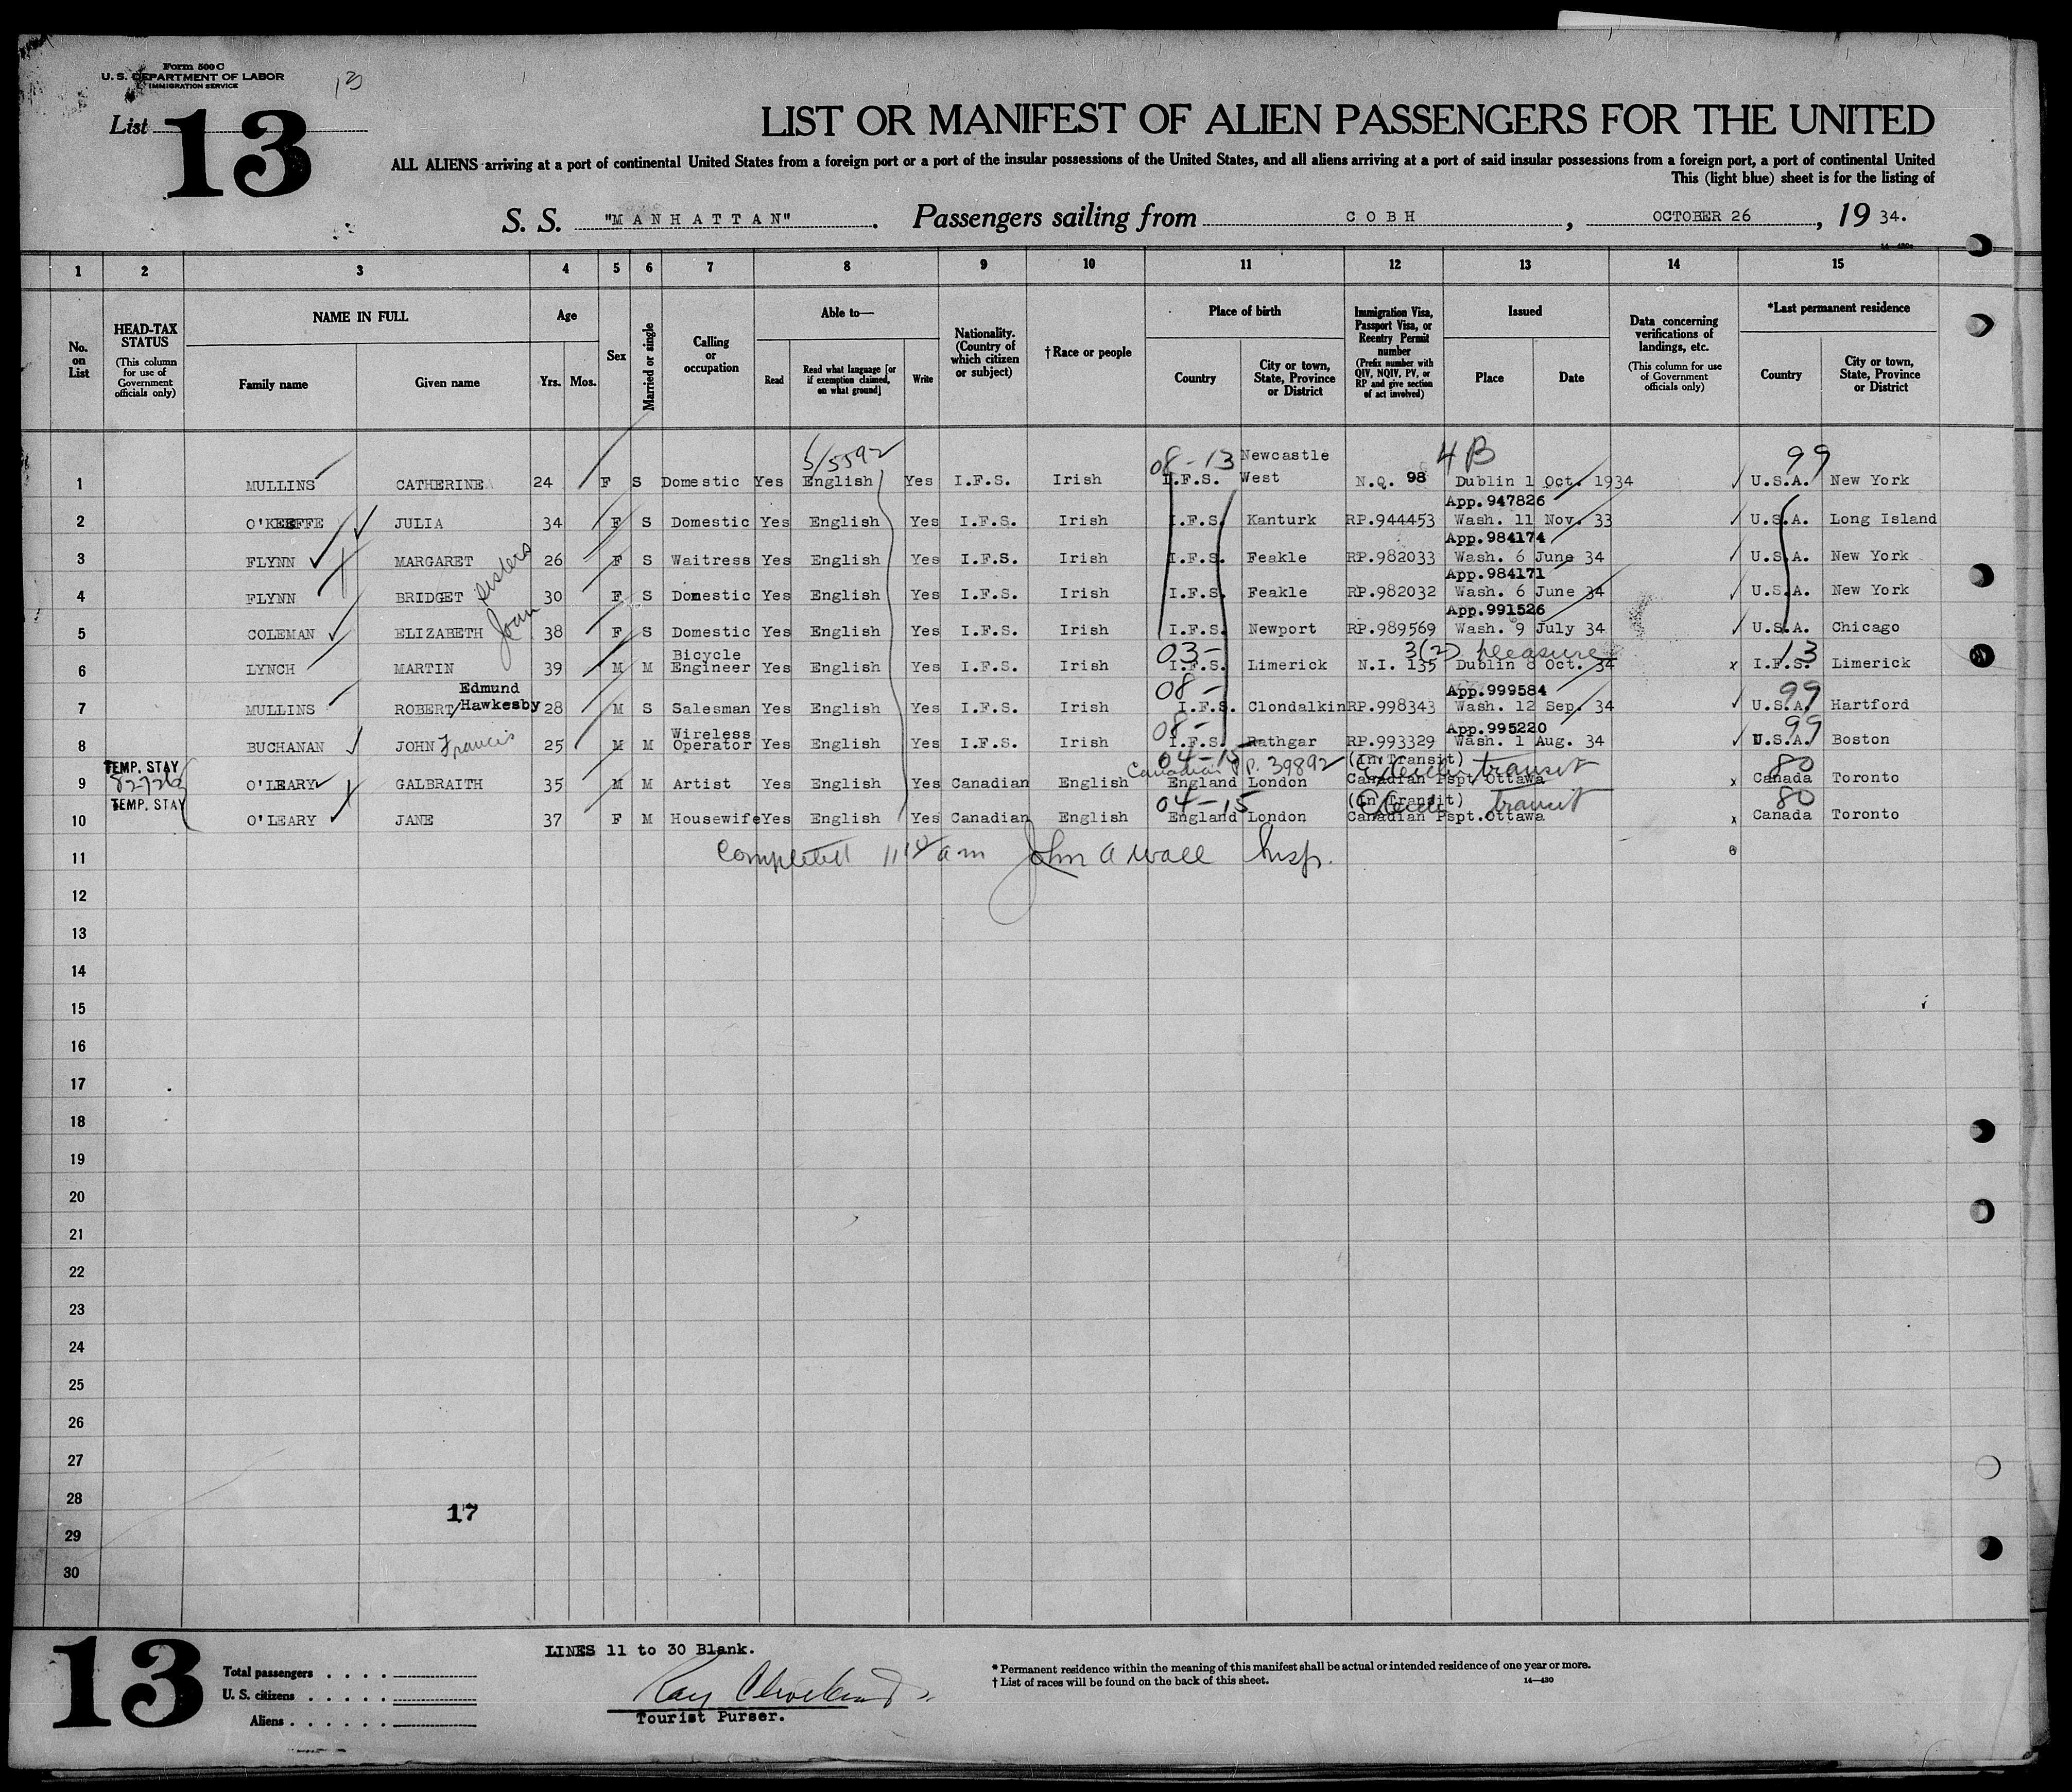 Form 500 C
U. S. DEPARTMENT OF LABOR
IMMIGRATION SERVICE
13
List 13
LIST OR MANIFEST OF ALIEN PASSENGERS FOR THE UNITED
ALL ALIENS arriving at a port of continental United States from a foreign port or a port of the insular possessions of the United States, and all aliens arriving at a port of said insular possessions from a foreign port, a port of continental United
This (light blue) sheet is for the listing of
S. S. "MANHATTAN". Passengers sailing from COBH, OCTOBER 26, 19 34.
1 2 3 4 5 6 7 8 9 10 11 12 13 14 15
No. on List
HEAD-TAX STATUS (This column for use of Government officials only)
NAME IN FULL Family name Given name
Age Yrs. Mos.
Sex
Married or single
Calling or occupation
Able to— Read Read what language [or if exemption claimed, on what ground] Write
Nationality. (Country of which citizen or subject)
† Race or people
Place of birth Country City or town, State, Province or District
Immigration Visa, Passport Visa, or Reentry Permit number (Prefix number with QIV, NQIV, PV, or RP and give section of act involved)
Issued Place Date
Data concerning verifications of landings, etc. (This column for use of Government officials only)
*Last permanent residence Country City or town, State, Province or District
5/5592 08-13 Newcastle 4B 99
1 MULLINS CATHERINE 24 F S Domestic Yes English Yes I.F.S. Irish I.F.S. West N.Q. 98 Dublin 1 Oct. 1934 U.S.A. New York
App. 947826
2 O'KEEFFE JULIA 34 F S Domestic Yes English Yes I.F.S. Irish I.F.S. Kanturk RP.944453 Wash. 11 Nov. 33 U.S.A. Long Island
App. 984174
3 FLYNN MARGARET sisters 26 F S Waitress Yes English Yes I.F.S. Irish I.F.S. Feakle RP.982033 Wash. 6 June 34 U.S.A. New York
App. 984171
4 FLYNN BRIDGET 30 F S Domestic Yes English Yes I.F.S. Irish I.F.S. Feakle RP.982032 Wash. 6 June 34 U.S.A. New York
App. 991526
5 COLEMAN ELIZABETH Joan 38 F S Domestic Yes English Yes I.F.S. Irish I.F.S. Newport RP.989569 Wash. 9 July 34 U.S.A. Chicago
Bicycle 03- 3(2) pleasure 13
6 LYNCH MARTIN 39 M M Engineer Yes English Yes I.F.S. Irish I.F.S. Limerick N.I. 135 Dublin 8 Oct. 34 x I.F.S. Limerick
Edmund 08- App. 999584 99
7 MULLINS ROBERT/Hawkesby 28 M S Salesman Yes English Yes I.F.S. Irish I.F.S. Clondalkin RP.998343 Wash. 12 Sep. 34 U.S.A. Hartford
Wireless 08- App. 995220 99
8 BUCHANAN JOHN Francis 25 M M Operator Yes English Yes I.F.S. Irish I.F.S. Rathgar RP.993329 Wash. 1 Aug. 34 U.S.A. Boston
TEMP. STAY 04-15 Canadian P.P. 39892 (In Transit) transit 80
9 O'LEARY GALBRAITH 35 M M Artist Yes English Yes Canadian English England London Canadian Pspt. Ottawa x Canada Toronto
TEMP. STAY 04-15 (In Transit) transit 80
10 O'LEARY JANE 37 F M Housewife Yes English Yes Canadian English England London Canadian Pspt. Ottawa x Canada Toronto
11 Completed 11 10 am John A Wall Insp.
12
13
14
15
16
17
18
19
20
21
22
23
24
25
26
27
28
17
29
30
13
LINES 11 to 30 Blank.
Total passengers
U. S. citizens
Aliens
Ray
Tourist Purser.
* Permanent residence within the meaning of this manifest shall be actual or intended residence of one year or more.
† List of races will be found on the back of this sheet.
14—430